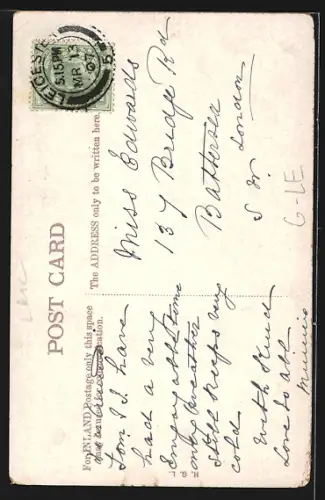 POST CARD
For INLAND Postage only this space
The ADDRESS only to be written here.
LEICESTER
5.15 PM
MR 13
07
5
Miss Edwards
137 Bridge Rd
Battersea
S. W. London
G-LE
I have
had a very
time
only weather
still keeps very
cold
With kind
Love to all
Minnie